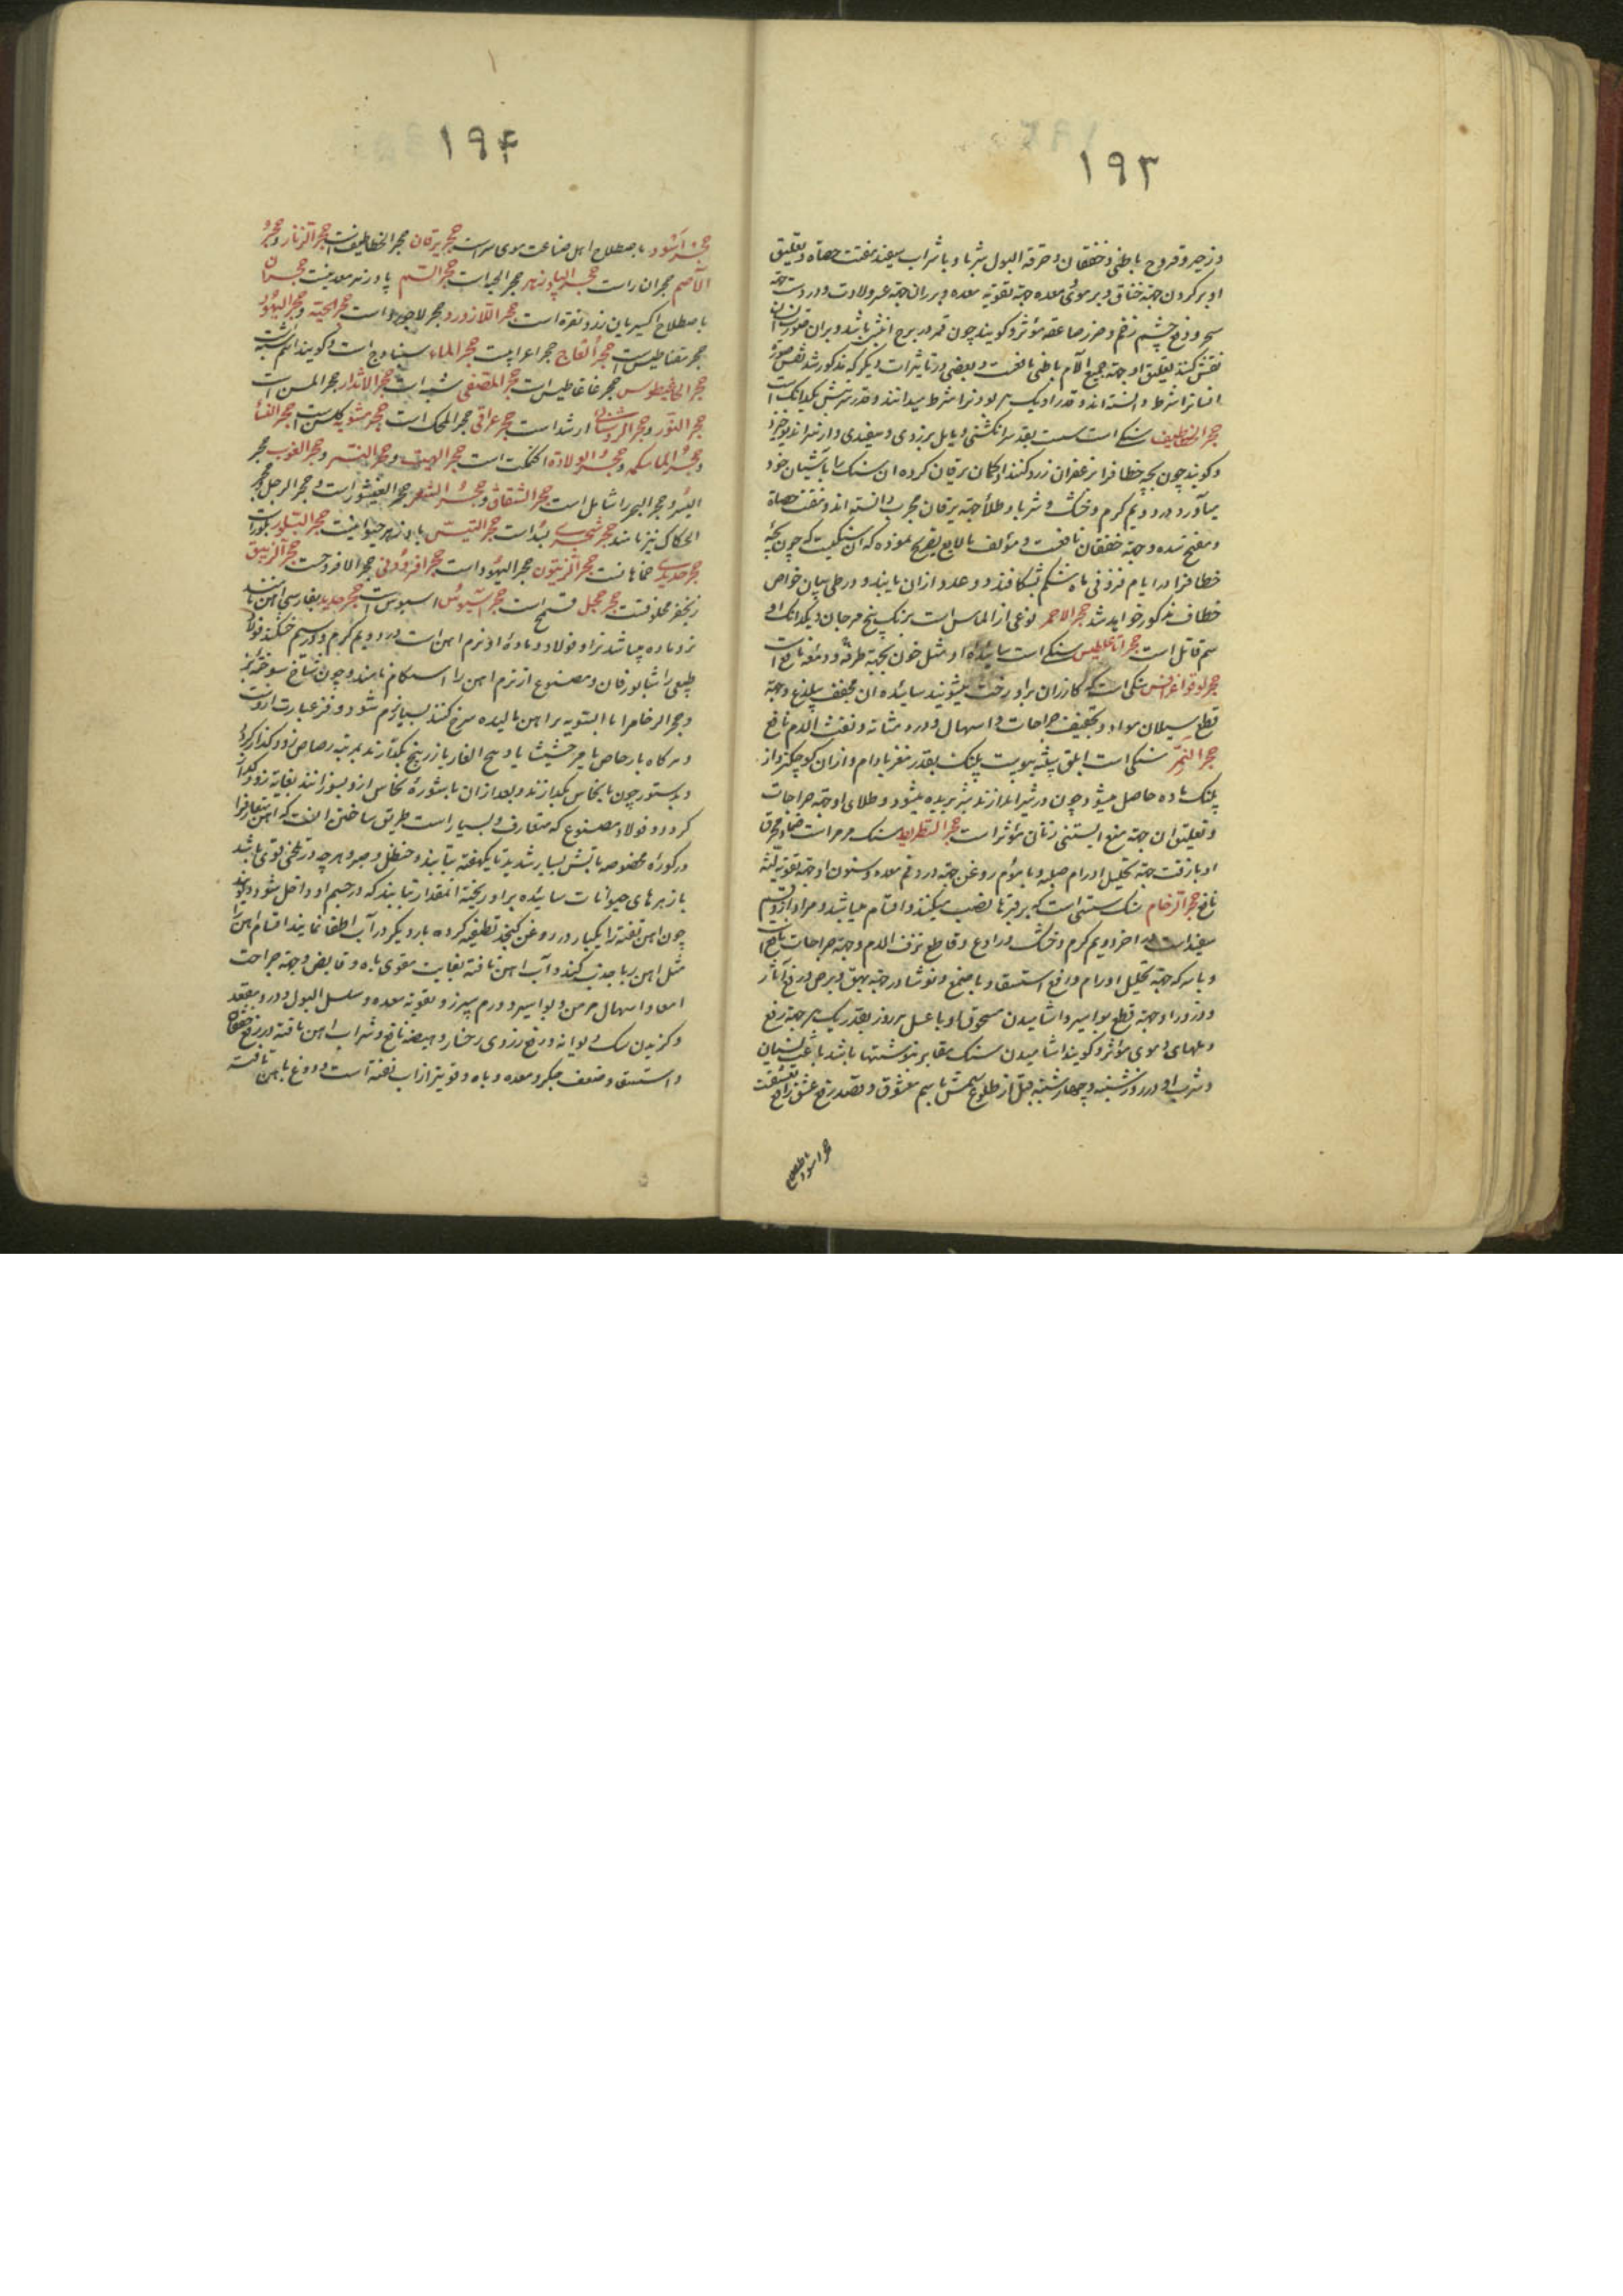 ۱۹۳
و زحیر و قروح باطنی و خفقان و حرقه البول شربا و با شراب سفید مفتت حصاة و تعلیق
او بر کردن جهة خناق و بر موئی معده جهة تقویة معده و بر ران جهة عسر ولادت و در دست جهة
سحر و دفع چشم زخم و ضرر صاعقه مؤثر و کویند چون قمر در برج باشد و بران صورت
نقش کنند تعلیق او جهة جمیع آلام باطنی نافعست و بعضی در تاثیرات دیکر که مذکور شد نقش صورة
افسانرا شرط دانسته اند و قدر او یک بودنرا شرط میدانند و قدر شربتش یکدانک است
حجر الخطاطیف سنکی است بقدر سر انکشتی و مایل بزردی و سفیدی و از نیز اند
و کویند چون بچه خطافرا بزعفران زرد کنند بکمان یرقان کرده آن سنک را بآشیان خود
میآورد در دویم کرم و خشک و شربا و طلاءً جهة یرقان مجرب دانسته اند و مفتت حصاة
و مفتح سده و جهة خفقان نافعست و مؤلف تصریح نموده که آن سنکیست که چون بچه
خطافرا در ایام فزونی ماه شکم بشکافند دو عدد از آن یابند و در طی بیان خواص
خطاف مذکور خواهد شد حجر الاحمر نوعی از الماس است برنک بیخ مرجان و یکدانک او
سم قاتل است حجر اناغلطیس سنکی است سائیده او مثل خون بجهة طرفه و دمعه نافع است
حجر لوقواغرافس سنکی است که کازران برو رخت میشویند سائیده ان مجفف بیلذع و جهة
قطع سیلان مواد و تجفیف جراحات و اسهال و درد مثانه و نفث الدم نافع
حجر النمر سنکی است ابلق شبیه بپوست پلنک بقدر مغز بادام و ازان کوچکتر و از
پلنک ماده حاصل میشود چون در شیر اندازند شیر بریده میشود و طلای او جهة جراحات
و تعلیق ان جهة منع ابستنی زنان مؤثر است حجر سنک مرمر است ضماد محرق
او با زفت جهة تحلیل اورام صلبه و با موم روغن جهة درد فم معده و سنون او جهة تقویة لثه
نافع حجر الرخام سنک سستی است که بر قبرها نصب میکنند و اقسام میباشد و مراد ازو قسم
سفید است در اخر دویم کرم و خشک و رادع و قاطع نزف الدم و جهة جراحات نافع
و با سرکه جهة تحلیل اورام و رافع استسقاء و با صمغ و نوشادر جهة بهق و برص و رفع آثار
و ذرور او جهة قطع بواسیر و اشامیدن مسحوق او با عسل هر روز بقدر یک درهم جهة رفع
دملهای دموی مؤثر و کویند اشامیدن سنک مقابر که نوشتها باشد باعث نسیان
و شرب او در روز شنبه و چهارشنبه قبل از طلوع شمس باسم معشوق و بقصد رفع عشق رافع
حجر اسود باصطلاح
۱۹۴
حجر اسود باصطلاح اهل صناعت موی سر است حجر یرقان حجر الخطاطیف است حجر النار و حجر
الاصم حجر ان راست حجر البادزهر حجر الحیه است حجر السم پادزهر معدنیست حجران
باصطلاح اکسیریان زر و نقره است حجر اللازورد حجر لاجورد است حجر الحیة و حجر الیهود
حجر مغناطیس است حجر العاج حجر اعرابیست حجر الماء سیناوج است و کویند
حجر حجر غاغاطیس است حجر المصفی حجر حجر المسن است
حجر النور و حجر الروشنا است حجر عراقی حجر المحک است حجر حجر النسا
و حجر الماسکه و حجر الولادة اکتمکت است حجر البهت و حجر النسر و حجر العقاب حجر
الیسر و حجر البحر را شامل است حجر الشقاق و حجر حجر القیشور است و حجر الرجل و حجر
الحکاک نیز نامند حجر شجری بسد است حجر التیس پادزهر حیوانیست حجر البلور بلور است
حجر حدیدی خماهانست حجر الزیتون حجر الیهود است حجر افروذی حجر الافروجست حجر الزیبق
زنجفر مخلوقست حجر حجر السبوس اسیوس است حجر حدید بفارسی اهن نامند
نر و ماده میباشد نر او فولاد و مادهٔ او نرم اهن است در دویم کرم و در سیم خشک و فولاد
طبیعی را شابورقان و مصنوع از نرم اهن را اسطام نامند و چون شاخ سوخته بز
و حجر الرخام را بالسویه بر اهن مالیده سرخ کنند بسیار نرم شود
و هرکاه با رصاص یا مرقشیشا یا دیح الفار یا زرنیخ بکدازند بمرتبه رصاص زود کداز کردد
و بدستور چون با نحاس بکدازند و بعد از ان با شورهٔ نحاس ازو بسوزانند بغایة زود کداز
کردد و فولاد مصنوع که متعارف و بسیار است طریق ساختن آنست که اهن متعارف را
در کوره مخصوصه باتش بسیار شدید تا یکهفته بتابند و حنظل و صبر و هر چه در تلخی قوی باشد
با زهرهای حیوانات سائیده بر او ریخته انقدار بتابند که در جسم او داخل شود
چون اهن تفته را یکبار در روغن کنجد تطفیه کرده بار دیکر در آب اطفا نمایند اقسام اهن را
مثل اهن ربا جذب کند و آب اهن تافته بغایت مقوی باه و قابض و جهة جراحت
امعا و اسهال مزمن و بواسیر و ورم سپرز و تقویة معده و سلس البول و درد مقعد
و کزیدن سک دیوانه و رفع زردی رخسار و هیضه نافع و شراب اهن تافته در رفع خفقان
و استسقا و ضعف جکر و معده و باه قویتر از اب تفته است و دوغ باهن تافته